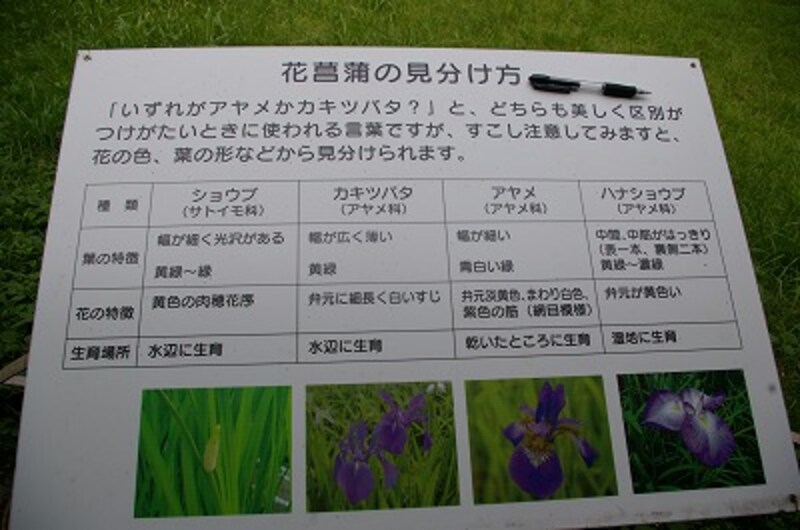 花菖蒲の見分け方
「いずれがアヤメかカキツバタ？」と、どちらも美しく区別が
つけがたいときに使われる言葉ですが、すこし注意してみますと、
花の色、葉の形などから見分けられます。
種類 ショウブ カキツバタ アヤメ ハナショウブ
（サトイモ科） （アヤメ科） （アヤメ科） （アヤメ科）
葉の特徴 幅が細く光沢がある 幅が広く薄い 幅が細い 中間、中筋がはっきり
（表一本、裏側二本）
黄緑～緑 黄緑 青白い緑 黄緑～濃緑
花の特徴 黄色の肉穂花序 弁元に細長く白いすじ 弁元淡黄色、まわり白色、 弁元が黄色い
紫色の筋（網目模様）
生育場所 水辺に生育 水辺に生育 乾いたところに生育 湿地に生育